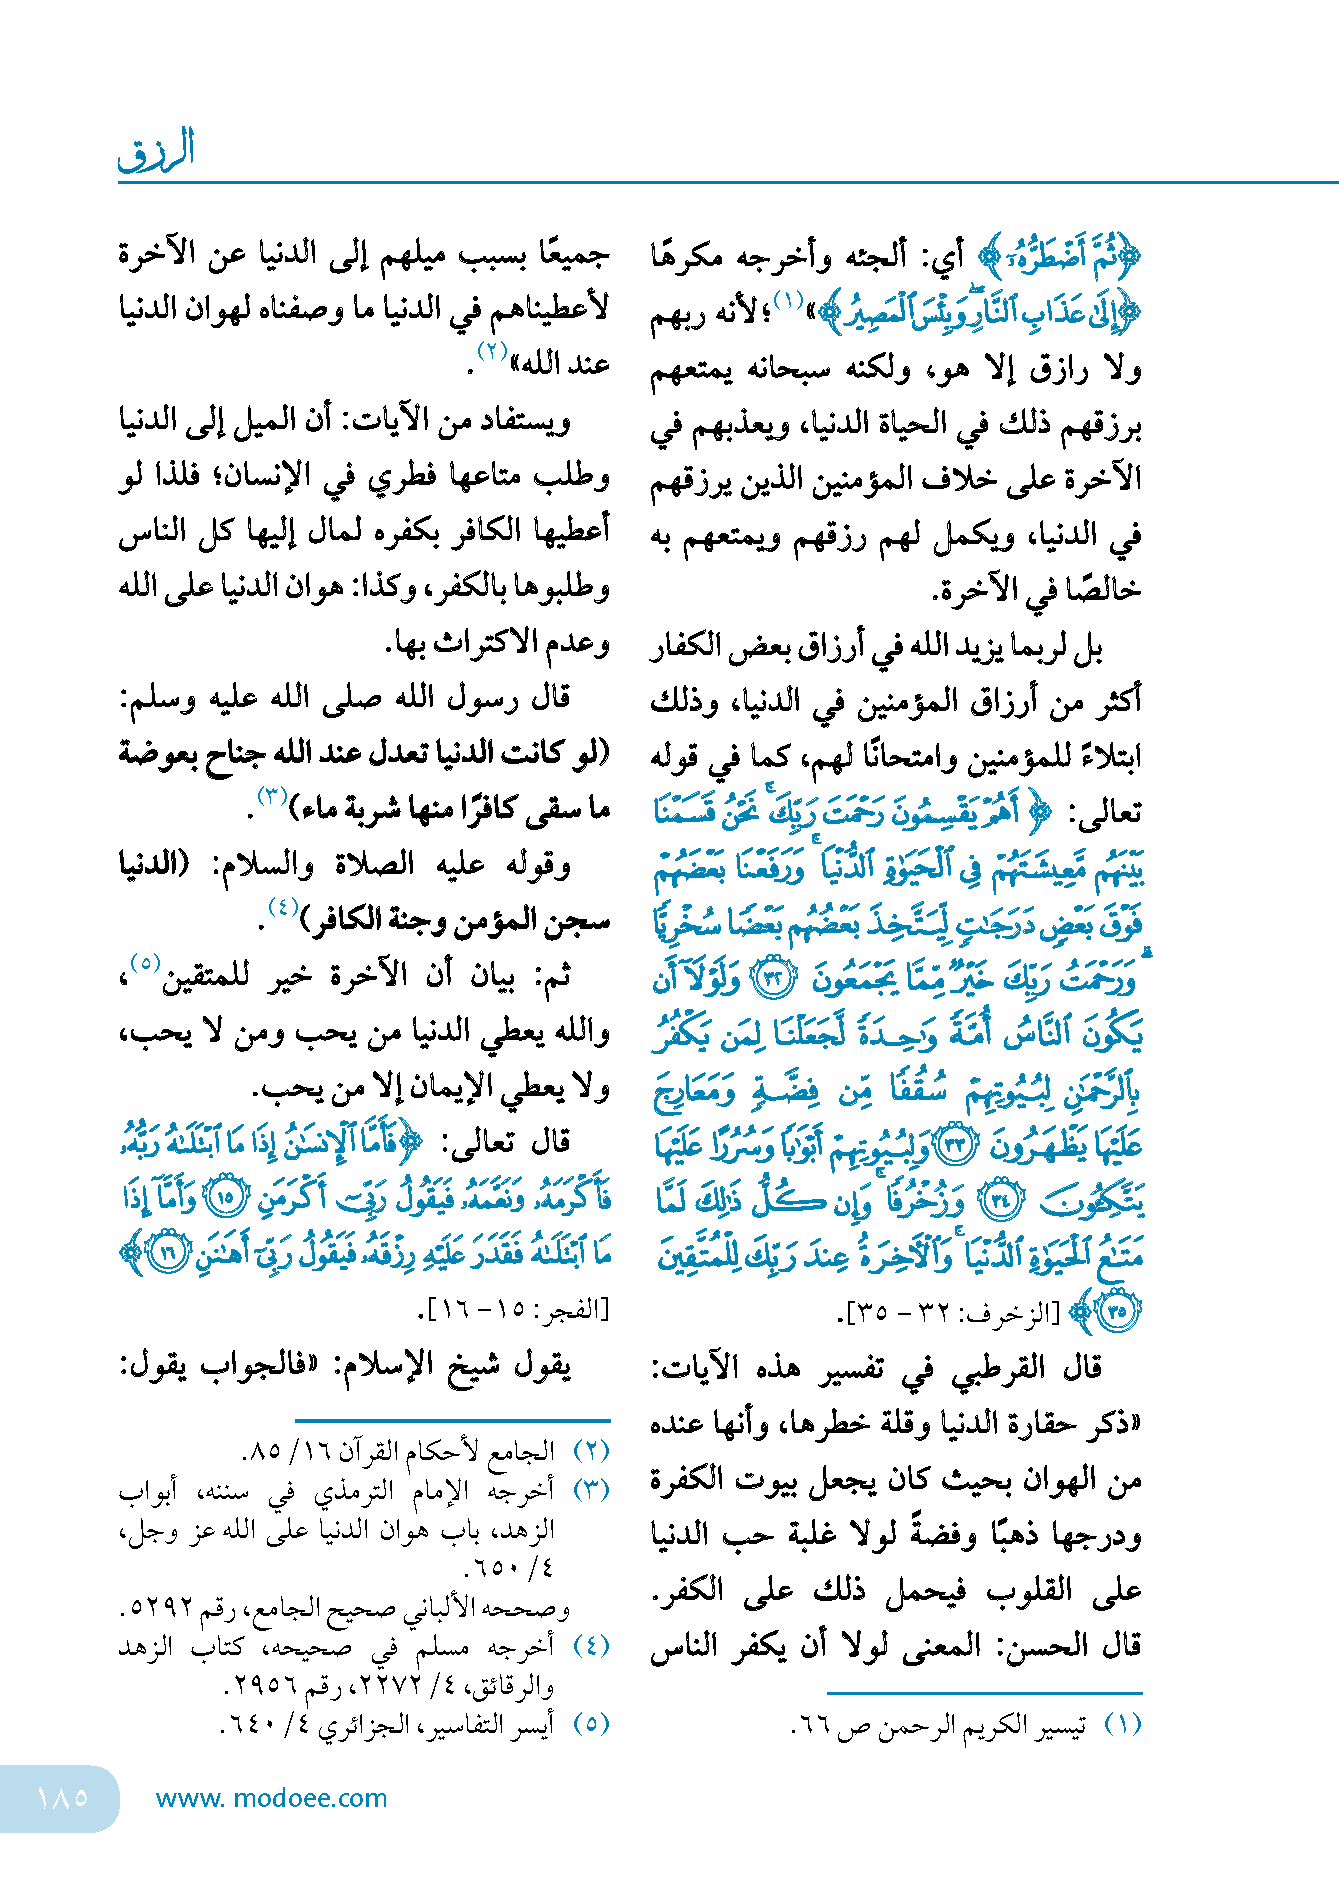 الرزق
﴿ثُمَّ أَضْطَرُّهُۥٓ﴾ أي: ألجئه وأخرجه مكرهًا
﴿إِلَىٰ عَذَابِ ٱلنَّارِ ۖ وَبِئْسَ ٱلْمَصِيرُ﴾»(١)؛ لأنه ربهم
ولا رازق إلا هو، ولكنه سبحانه يمتعهم
برزقهم ذلك في الحياة الدنيا، ويعذبهم في
الآخرة على خلاف المؤمنين الذين يرزقهم
في الدنيا، ويكمل لهم رزقهم ويمتعهم به
خالصًا في الآخرة.
بل لربما يزيد الله في أرزاق بعض الكفار
أكثر من أرزاق المؤمنين في الدنيا، وذلك
ابتلاءً للمؤمنين وامتحانًا لهم، كما في قوله
تعالى: ﴿أَهُمْ يَقْسِمُونَ رَحْمَتَ رَبِّكَ ۚ نَحْنُ قَسَمْنَا
بَيْنَهُم مَّعِيشَتَهُمْ فِي ٱلْحَيَوٰةِ ٱلدُّنْيَا ۚ وَرَفَعْنَا بَعْضَهُمْ
فَوْقَ بَعْضٍ دَرَجَٰتٍ لِّيَتَّخِذَ بَعْضُهُم بَعْضًا سُخْرِيًّا ۗ
وَرَحْمَتُ رَبِّكَ خَيْرٌ مِّمَّا يَجْمَعُونَ ٣٢ وَلَوْلَآ أَن
يَكُونَ ٱلنَّاسُ أُمَّةً وَٰحِدَةً لَّجَعَلْنَا لِمَن يَكْفُرُ
بِٱلرَّحْمَٰنِ لِبُيُوتِهِمْ سُقُفًا مِّن فِضَّةٍ وَمَعَارِجَ
عَلَيْهَا يَظْهَرُونَ ٣٣ وَلِبُيُوتِهِمْ أَبْوَٰبًا وَسُرُرًا عَلَيْهَا
يَتَّكِـُٔونَ ٣٤ وَزُخْرُفًا ۚ وَإِن كُلُّ ذَٰلِكَ لَمَّا
مَتَٰعُ ٱلْحَيَوٰةِ ٱلدُّنْيَا ۚ وَٱلْأَخِرَةُ عِندَ رَبِّكَ لِلْمُتَّقِينَ
٣٥﴾ [الزخرف: ٣٢ - ٣٥].
قال القرطبي في تفسير هذه الآيات:
«ذكر حقارة الدنيا وقلة خطرها، وأنها عنده
من الهوان بحيث كان يجعل بيوت الكفرة
ودرجها ذهبًا وفضةً لولا غلبة حب الدنيا
على القلوب فيحمل ذلك على الكفر.
قال الحسن: المعنى لولا أن يكفر الناس
(١) تيسير الكريم الرحمن ص ٦٦.
جميعًا بسبب ميلهم إلى الدنيا عن الآخرة
لأعطيناهم في الدنيا ما وصفناه لهوان الدنيا
عند الله»(٢).
ويستفاد من الآيات: أن الميل إلى الدنيا
وطلب متاعها فطري في الإنسان؛ فلذا لو
أعطيها الكافر بكفره لمال إليها كل الناس
وطلبوها بالكفر، وكذا: هوان الدنيا على الله
وعدم الاكتراث بها.
قال رسول الله صلى الله عليه وسلم:
(لو كانت الدنيا تعدل عند الله جناح بعوضة
ما سقى كافرًا منها شربة ماء)(٣).
وقوله عليه الصلاة والسلام: (الدنيا
سجن المؤمن وجنة الكافر)(٤).
ثم: بيان أن الآخرة خير للمتقين(٥)،
والله يعطي الدنيا من يحب ومن لا يحب،
ولا يعطي الإيمان إلا من يحب.
قال تعالى: ﴿فَأَمَّا ٱلْإِنسَٰنُ إِذَا مَا ٱبْتَلَىٰهُ رَبُّهُۥ
فَأَكْرَمَهُۥ وَنَعَّمَهُۥ فَيَقُولُ رَبِّىٓ أَكْرَمَنِ ١٥ وَأَمَّآ إِذَا
مَا ٱبْتَلَىٰهُ فَقَدَرَ عَلَيْهِ رِزْقَهُۥ فَيَقُولُ رَبِّىٓ أَهَٰنَنِ ١٦﴾
[الفجر: ١٥- ١٦].
يقول شيخ الإسلام: «فالجواب يقول:
(٢) الجامع لأحكام القرآن ١٦/ ٨٥.
(٣) أخرجه الإمام الترمذي في سننه، أبواب
الزهد، باب هوان الدنيا على الله عز وجل،
٤/ ٦٥٠.
وصححه الألباني صحيح الجامع، رقم ٥٢٩٢.
(٤) أخرجه مسلم في صحيحه، كتاب الزهد
والرقائق، ٤/ ٢٢٧٢، رقم ٢٩٥٦.
(٥) أيسر التفاسير، الجزائري ٤/ ٦٤٠.
١٨٥
www. modoee.com